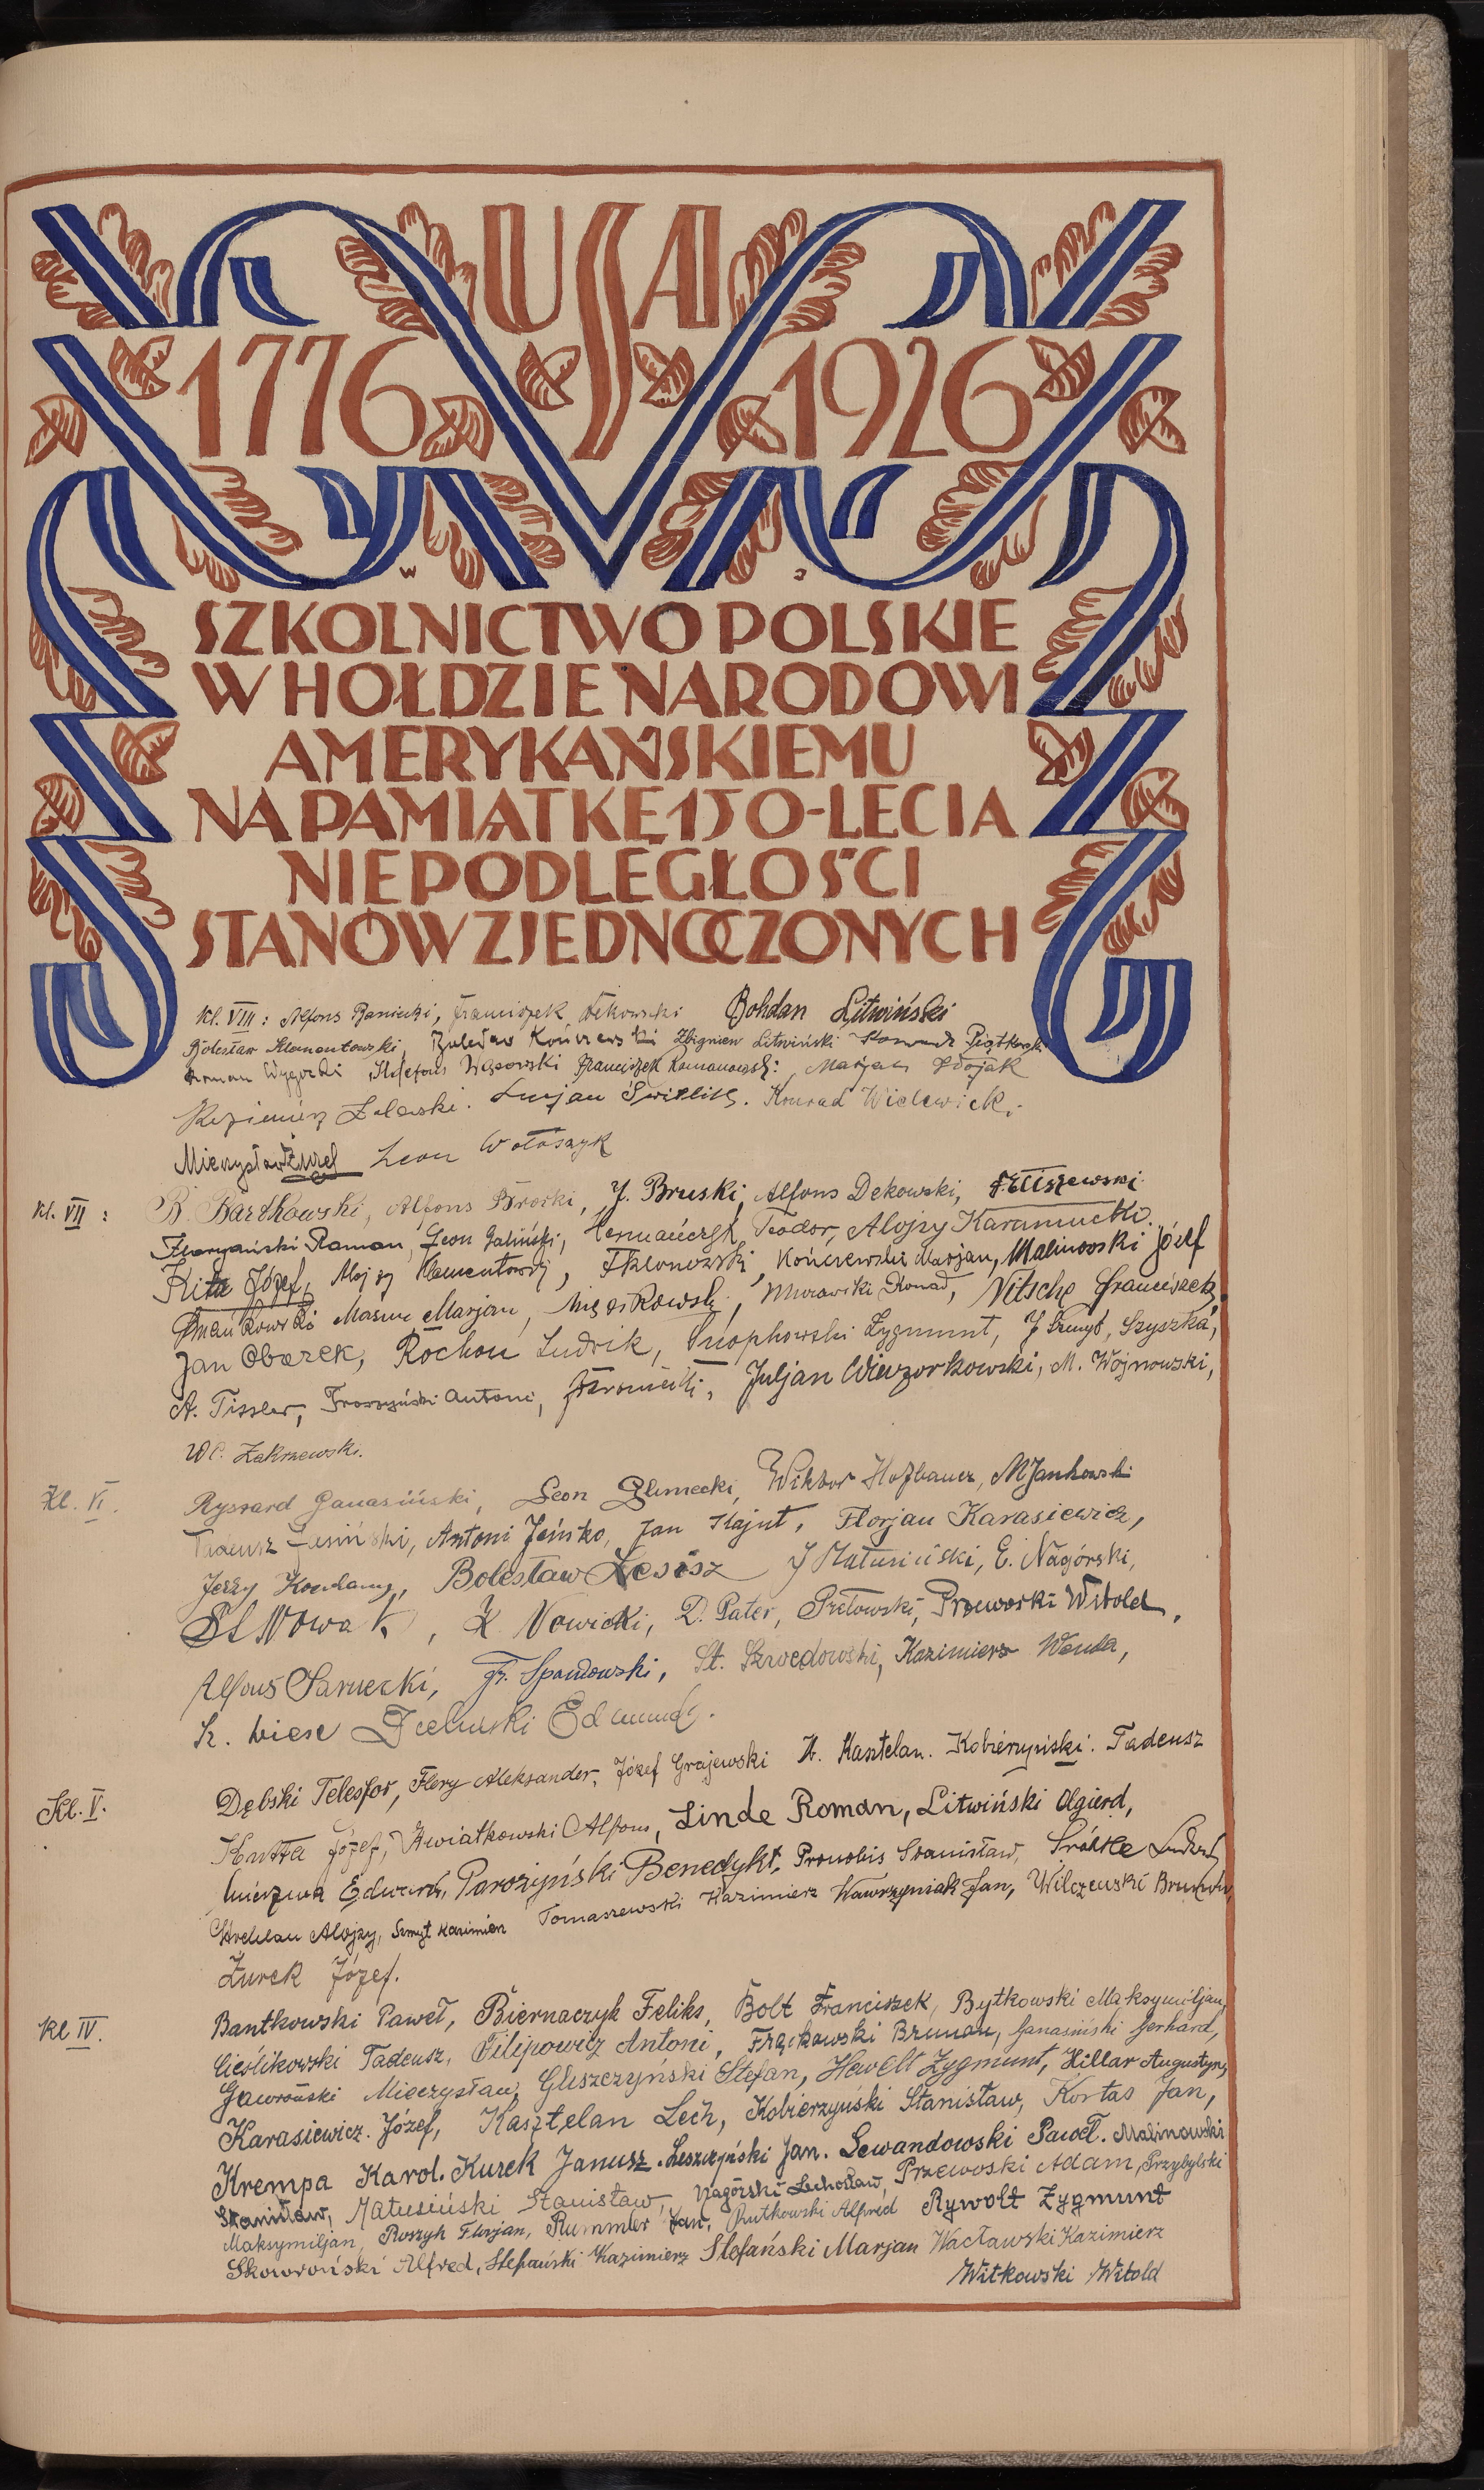 USA
1776 1926
SZKOLNICTWO POLSKIE
W HOŁDZIE NARODOWI
AMERYKAŃSKIEMU
NA PAMIĄTKĘ 150-LECIA
NIEPODLEGŁOŚCI
STANÓW ZJEDNOCZONYCH
Kl. VIII: Alfons Franciszek Bohdan Litwiński
Bolesław Klamontowski, Zbigniew Litwiński
Franciszek Romanowski Marjan Wojak
Lucjan Świtlik. Konrad
Mieczysław Żurek Leon Wołoszyk
Kl. VII: B. Bartkowski, Alfons Brocki, J. Bruski, Alfons Dekowski,
Florjański Roman, Leon Galiński, Teodor, Alojzy
Kita Józef, Alojzy Klamentowski, Kończewski Marjan, Malinowski Józef
Marjan, Murawski Konrad, Nitsche Franciszek,
Jan Obarek, Rochon Ludwik, Zygmunt, Szyszka,
A. Tissler, Antoni, Juljan Wieczorkowski, M. Wojnowski,
Wł. Zakrzewski.
Kl. VI. Ryszard Ganasiński, Leon Glimecki, Wiktor Hofbauer, M Jankowski
Tadeusz Jasiński, Antoni Jeńsko, Jan Kajut, Florjan Karasiewicz,
Jerzy Bolesław J Matusiński, E. Nagórski,
St Nowak, K. Nowicki, D. Pater, Przeworski Witold,
Alfons Sarnecki, Fr. Spandowski, St. Szwedowski, Kazimierz Wenda,
Wiese Edmund.
Kl. V. Dębski Telesfor, Flery Aleksander, Józef Grajewski W. Kasztelan. Kobierzyński. Tadeusz
Kutta Józef, Kwiatkowski Alfons, Linde Roman, Litwiński Olgierd,
Edward, Parożyński Benedykt, Pronobis Stanisław,
Alojzy, Szmyt Kazimierz Tomaszewski Kazimierz Wawrzyniak Jan, Wilczewski Brunon,
Żurek Józef.
Kl IV. Bantkowski Paweł, Biernaczyk Feliks, Bolt Franciszek, Bytkowski Maksymiljan,
Cieślikowski Tadeusz, Filipowicz Antoni, Frąckowski Brunon, Ganasiński Gerhard,
Gawroński Mieczysław, Gliszczyński Stefan, Hewelt Zygmunt, Hillar Augustyn,
Karasiewicz. Józef, Kasztelan Lech, Kobierzyński Stanisław, Kortas Jan,
Krempa Karol. Kurek Janusz. Leszczyński Jan. Lewandowski Paweł. Malinowski
Stanisław, Matusiński Stanisław, Nagórski Lechosław, Przewoski Adam, Przybylski
Maksymiljan, Roszyk Florjan, Rummler Jan, Rutkowski Alfred Rywolt Zygmunt
Skowroński Alfred, Stefański Kazimierz Stefański Marjan Wacławski Kazimierz
Witkowski Witold